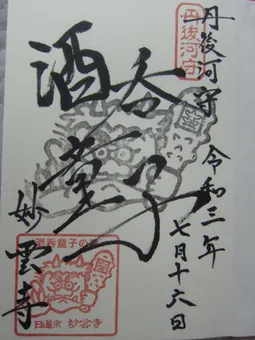 丹後河守
丹後河守
令和三年
七月十六日
酒呑
童子
妙雲寺
酒呑童子の
妙雲寺